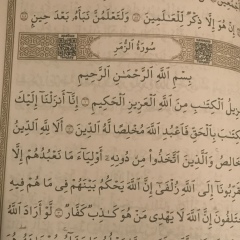 إِنْ هُوَ إِلَّا ذِكْرٌ لِّلْعَالَمِينَ ۝ وَلَتَعْلَمُنَّ نَبَأَهُ بَعْدَ حِينٍ ۝
سُورَةُ الزُّمَرِ
بِسْمِ اللَّهِ الرَّحْمَٰنِ الرَّحِيمِ
نزِيلُ الْكِتَابِ مِنَ اللَّهِ الْعَزِيزِ الْحَكِيمِ ۝ إِنَّا أَنزَلْنَا إِلَيْكَ
كِتَابَ بِالْحَقِّ فَاعْبُدِ اللَّهَ مُخْلِصًا لَّهُ الدِّينَ ۝ أَلَا لِلَّهِ الدِّينُ
خَالِصُ وَالَّذِينَ اتَّخَذُوا مِن دُونِهِ أَوْلِيَاءَ مَا نَعْبُدُهُمْ إِلَّا
قَرِّبُونَا إِلَى اللَّهِ زُلْفَىٰ إِنَّ اللَّهَ يَحْكُمُ بَيْنَهُمْ فِي مَا هُمْ فِيهِ
تَلِفُونَ إِنَّ اللَّهَ لَا يَهْدِي مَنْ هُوَ كَاذِبٌ كَفَّارٌ ۝ لَّوْ أَرَادَ اللَّهُ